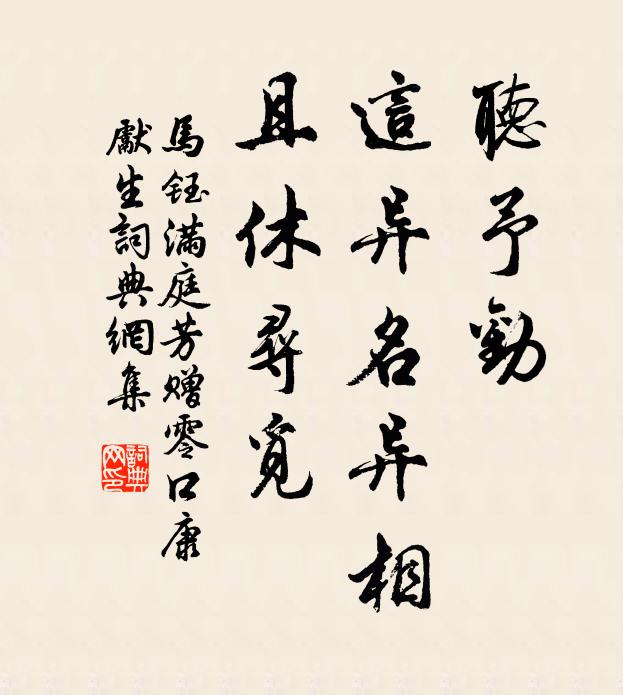 聽予勸
這异名异相
且休尋覓
馬鈺滿庭芳赠零口康
獻生詞典網集
詞典
网印